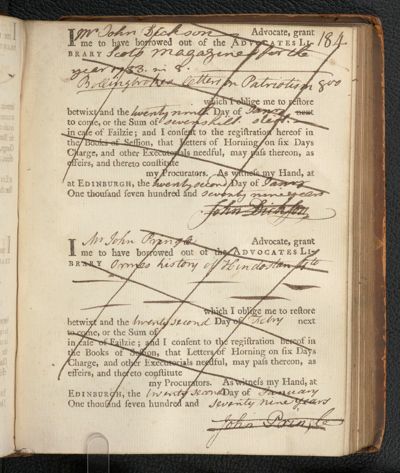 I Mr John Dickson Advocate, grant 184
me to have borrowed out of the ADVOCATES LI-
BRARY Scots magazine for the
year 1753. in 8.
Bollingbrokes letters on Patriotism 8vo
which I oblige me to restore
betwixt and the twenty ninth Day of Janry next
to come, or the Sum of seven shill. sterl.
in case of Failzie; and I consent to the registration hereof in
the Books of Session, that Letters of Horning on six Days
Charge, and other Executorials needful, may pass thereon, as
effeirs, and thereto constitute
my Procurators. As witness my Hand, at
at EDINBURGH, the twenty second Day of Janry
One thousand seven hundred and seventy nine years
John Dickson
I Mr John Pringle Advocate, grant
me to have borrowed out of the ADVOCATES LI-
BRARY Ormes history of Hindostan 4to
which I oblige me to restore
betwixt and the twenty second Day of Febry next
to come, or the Sum of
in case of Failzie; and I consent to the registration hereof in
the Books of Session, that Letters of Horning on six Days
Charge, and other Executorials needful, may pass thereon, as
effeirs, and thereto constitute
my Procurators. As witness my Hand, at
EDINBURGH, the twenty second Day of January
One thousand seven hundred and seventy nine years
John Pringle